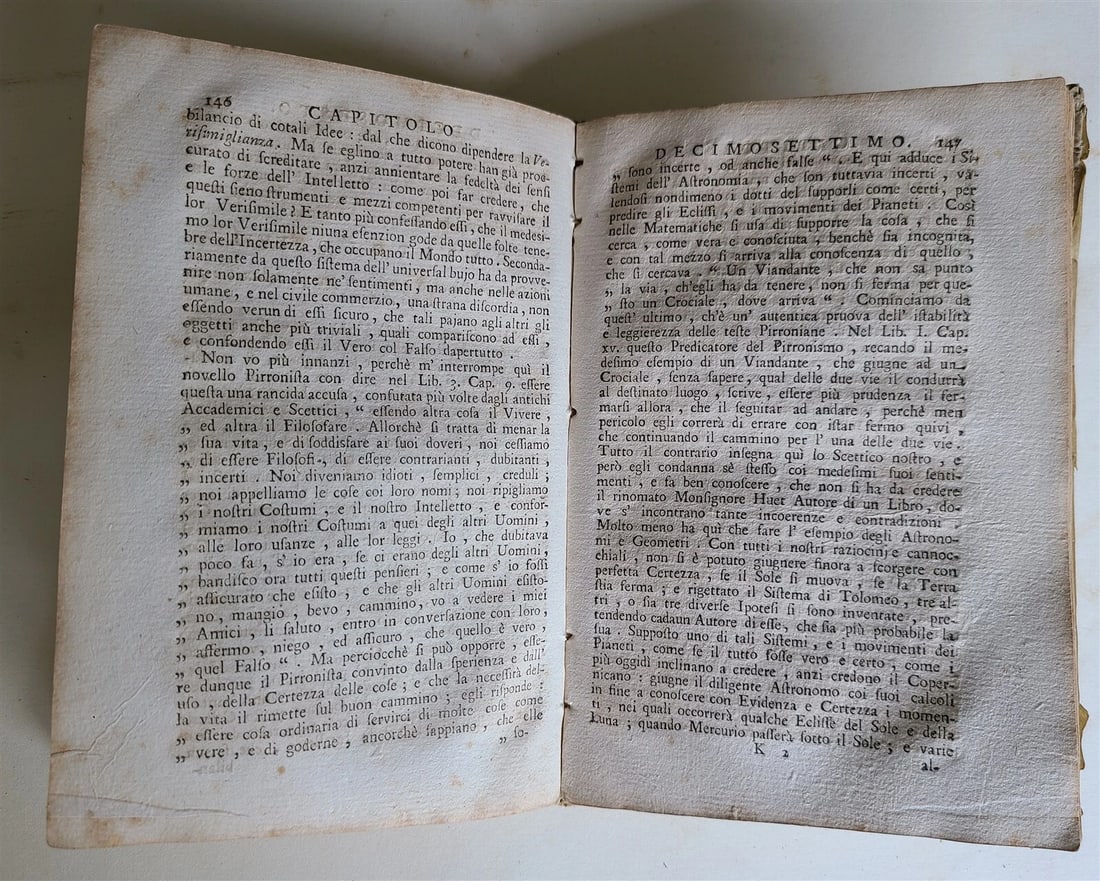 146
CAPITOLO
bilancio di cotali Idee : dal che dicono dipendere la Ve-
risimiglianza. Ma se eglino a tutto potere han già proc-
curato di screditare , anzi annientare la fedeltà dei sensi
e le forze dell' Intelletto : come poi far credere, che
questi sieno strumenti e mezzi competenti per ravvisare il
lor Verisimile ? E tanto più confessando essi , che il medesi-
mo lor Verisimile niuna esenzion gode da quelle folte tene-
bre dell'Incertezza, che occupano il Mondo tutto. Seconda-
riamente da questo sistema dell' universal bujo ha da provve-
nire non solamente ne' sentimenti , ma anche nelle azioni
umane , e nel civile commerzio, una strana discordia , non
essendo verun di essi sicuro , che tali pajano agli altri gli
oggetti anche più triviali , quali compariscono ad essi ,
e confondendo essi il Vero col Falso dapertutto .
Non vo più innanzi , perchè m' interrompe quì il
novello Pirronista con dire nel Lib. 3. Cap. 9. essere
questa una rancida accusa , confutata più volte dagli antichi
Accademici e Scettici , “ essendo altra cosa il Vivere ,
„ ed altra il Filosofare . Allorchè si tratta di menar la
„ sua vita , e di soddisfare ai suoi doveri , noi cessiamo
„ di essere Filosofi , di essere contrarianti , dubitanti ,
„ incerti . Noi diveniamo idioti , semplici , creduli ;
„ noi appelliamo le cose coi loro nomi ; noi ripigliamo
„ i nostri Costumi , e il nostro Intelletto , e confor-
„ miamo i nostri Costumi a quei degli altri Uomini ,
„ alle loro usanze , alle lor leggi . Io , che dubitava
„ poco fa , s' io era , se ci erano degli altri Uomini,
„ bandisco ora tutti questi pensieri ; e come s' io fossi
„ assicurato che esisto , e che gli altri Uomini esisto-
„ no , mangio , bevo , cammino, vo a vedere i miei
„ Amici , li saluto , entro in conversazione con loro,
„ affermo , niego , ed assicuro , che quello è vero ,
„ quel Falso “ . Ma perciocchè si può opporre , esse-
re dunque il Pirronista convinto dalla sperienza e dall'
uso , della Certezza delle cose ; e che la necessità del-
la vita il rimette sul buon cammino ; egli risponde :
„ essere cosa ordinaria di servirci di molte cose come
„ vere , e di goderne , ancorchè sappiano , che elle
„ so-
DECIMOSETTIMO. 147
„ sono incerte , od anche false “ . E qui adduce i Si-
stemi dell' Astronomia , che son tuttavia incerti , va-
lendosi nondimeno i dotti del supporli come certi, per
predire gli Eclissi , e i movimenti dei Pianeti . Così
nelle Matematiche si usa di supporre la cosa , che si
cerca , come vera e conosciuta , benchè sia incognita,
e con tal mezzo si arriva alla conoscenza di quello ,
che si cercava . “ Un Viandante , che non sa punto
„ la via , ch'egli ha da tenere, non si ferma per que-
„ sto un Crociale , dove arriva “ . Cominciamo da
quest' ultimo , ch'è un' autentica pruova dell' istabilità
e leggierezza delle teste Pirroniane . Nel Lib. I. Cap.
xv. questo Predicatore del Pirronismo , recando il me-
desimo esempio di un Viandante , che giugne ad un
Crociale , senza sapere, qual delle due vie il condurrà
al destinato luogo , scrive , essere più prudenza il fer-
marsi allora , che il seguitar ad andare , perchè men
pericolo egli correrà di errare con istar fermo quivi ,
che continuando il cammino per l' una delle due vie.
Tutto il contrario insegna quì lo Scettico nostro , e
però egli condanna sè stesso coi medesimi suoi senti-
menti , e fa ben conoscere , che non si ha da credere
il rinomato Monsignore Huet Autore di un Libro, do-
ve s' incontrano tante incoerenze e contradizioni .
Molto meno ha quì che fare l' esempio degli Astrono-
mi e Geometri . Con tutti i nostri raziocinj e cannoc-
chiali , non si è potuto giugnere finora a scorgere con
perfetta Certezza , se il Sole si muova , se la Terra
stia ferma ; e rigettato il Sistema di Tolomeo , tre al-
tri , o sia tre diverse Ipotesi si sono inventate , pre-
tendendo cadaun Autore di esse, che sia più probabile la
sua . Supposto uno di tali Sistemi , e i movimenti dei
Pianeti , come se il tutto fosse vero e certo , come i
più oggidì inclinano a credere , anzi credono il Coper-
nicano : giugne il diligente Astronomo coi suoi calcoli
in fine a conoscere con Evidenza e Certezza i momen-
ti , nei quali occorrerà qualche Eclisse del Sole e della
Luna ; quando Mercurio passerà sotto il Sole ; e varie
K 2
al-